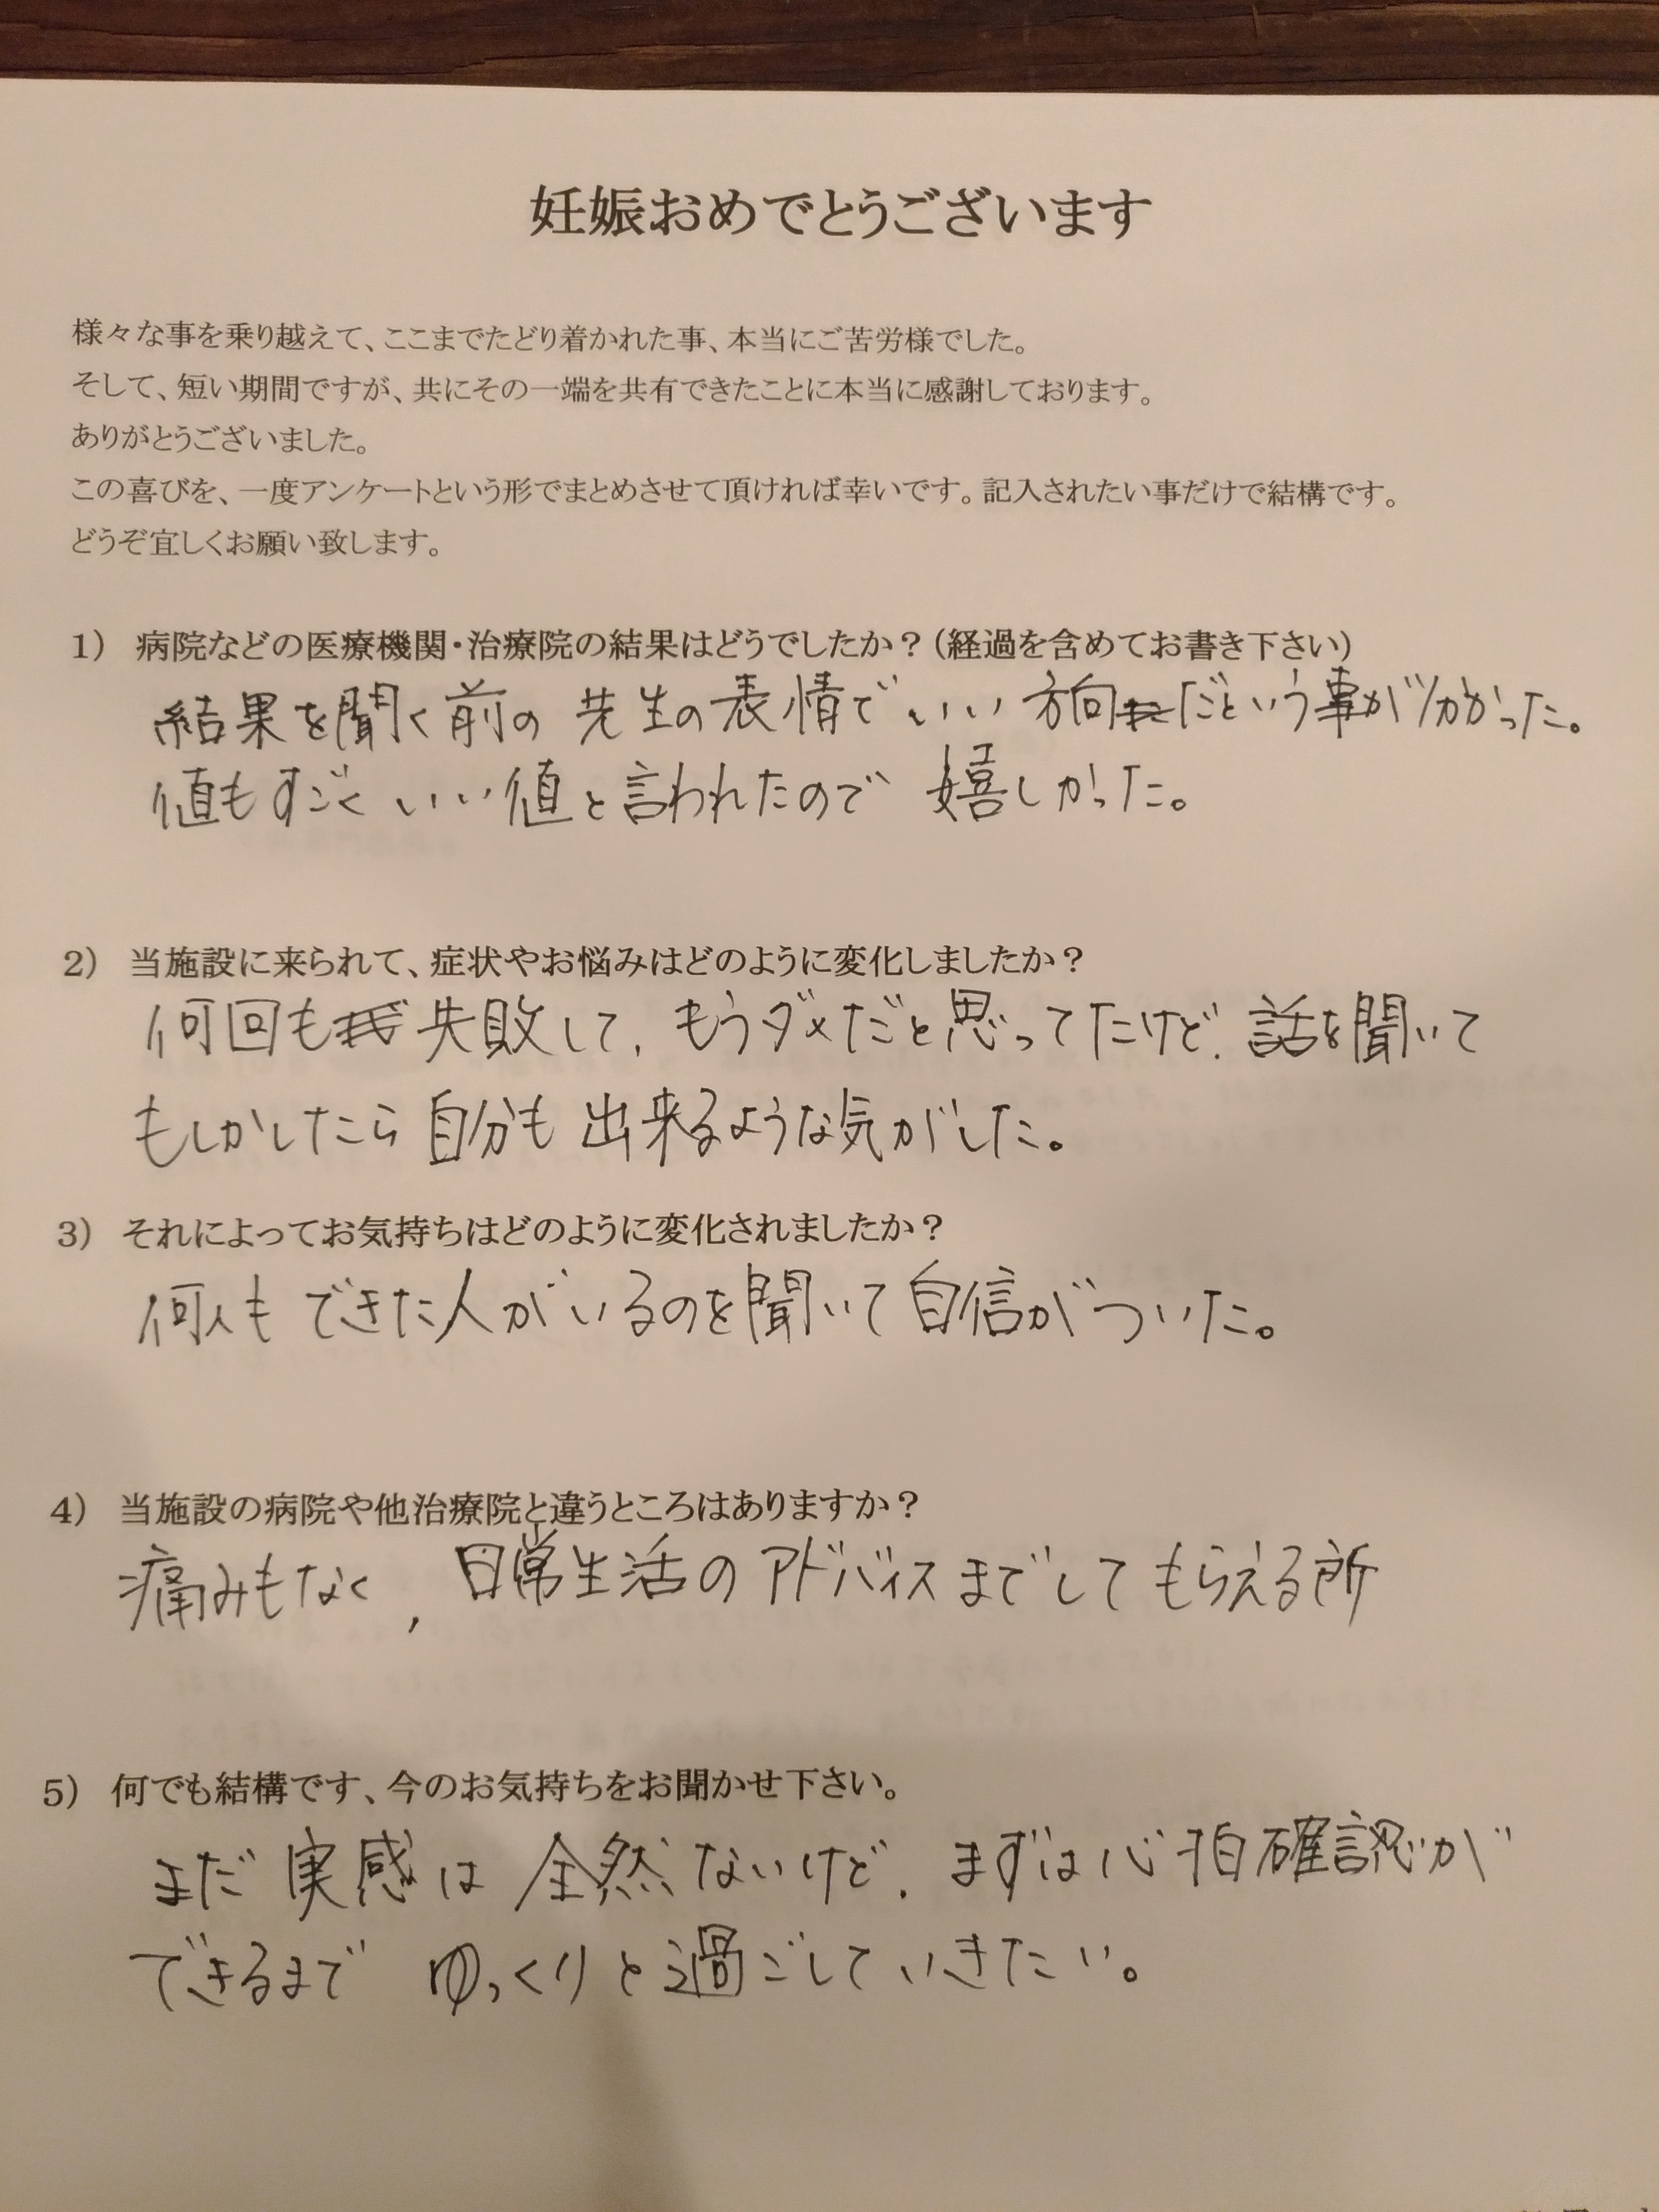 妊娠おめでとうございます
様々な事を乗り越えて、ここまでたどり着かれた事、本当にご苦労様でした。
そして、短い期間ですが、共にその一端を共有できたことに本当に感謝しております。
ありがとうございました。
この喜びを、一度アンケートという形でまとめさせて頂ければ幸いです。記入されたい事だけで結構です。
どうぞ宜しくお願い致します。
1) 病院などの医療機関・治療院の結果はどうでしたか？(経過を含めてお書き下さい)
結果を聞く前の先生の表情でいい方向だという事が分かった。
値もすごくいい値と言われたので嬉しかった。
2) 当施設に来られて、症状やお悩みはどのように変化しましたか？
何回も失敗して、もうダメだと思ってたけど、話を聞いて
もしかしたら自分も出来るような気がした。
3) それによってお気持ちはどのように変化されましたか？
何人もできた人がいるのを聞いて自信がついた。
4) 当施設の病院や他治療院と違うところはありますか？
痛みもなく、日常生活のアドバイスまでしてもらえる所
5) 何でも結構です、今のお気持ちをお聞かせ下さい。
まだ実感は全然ないけど、まずは心拍確認が
できるまでゆっくりと過ごしていきたい。